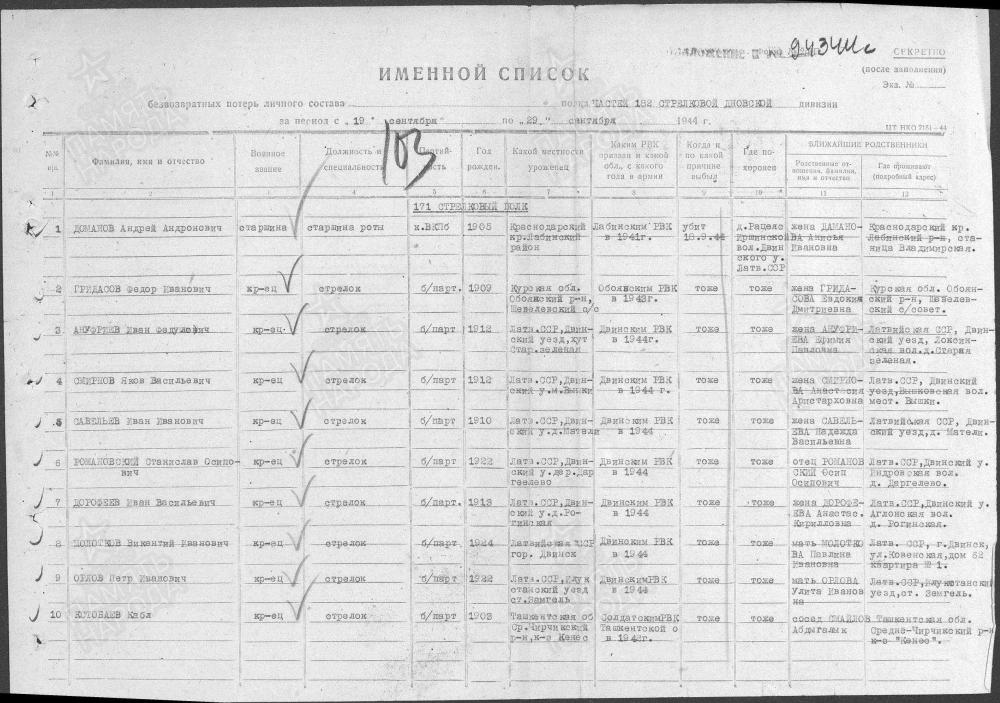 94344с
СЕКРЕТНО
(после заполнения)
Экз. №
ИМЕННОЙ СПИСОК
безвозвратных потерь личного состава полка ЧАСТЕЙ 182 СТРЕЛКОВОЙ ДНОВСКОЙ дивизии
за период с „19" сентября по „29" сентября 1944 г.
103
№№ Фамилия, имя и отчество Военное звание Должность и специальность Партийность Год рожден. Какой местности уроженец Каким РВК призван и какой обл., с какого года в армии Когда и по какой причине выбыл Где похоронен БЛИЖАЙШИЕ РОДСТВЕННИКИ
Родственные отношения, фамилия, имя и отчество Где проживают (подробный адрес)
1 2 3 4 5 6 7 8 9 10 11 12
171 СТРЕЛКОВЫЙ ПОЛК
1 ДОМАНОВ Андрей Андронович старшина старшина роты к.ВКПб 1905 Краснодарский Лабинским РВК убит д.Рацеяс жена ДАМАНО- Краснодарский кр.
кр.Лабинский в 1941г. 18.9.44 Иршинской ВА Анисья Лабинский р-н, ста-
район вол.Двин Ивановна ница Владимирская.
ского у.
Латв.ССР
2 ГРИДАСОВ Федор Иванович кр-ец стрелок б/парт. 1909 Курская обл. Обоянским РВК тоже тоже жена ГРИДА- Курская обл. Обоян-
Обоянский р-н, в 1943г. СОВА Евдокия ский р-н, Шевелев-
Шевелевский с/с Дмитриевна ский с/совет.
3 АНУФРИЕВ Иван Федулович кр-ец стрелок б/парт 1912 Латв.ССР,Двин- Двинским РВК тоже тоже жена АНУФРИ- Латвийская ССР, Двин-
ский уезд,хут в 1944г. ЕВА Ефимия ский уезд,
Стар.зеленая Павловна ская вол.д.Старая
зеленая.
4 СМИРНОВ Яков Васильевич кр-ец стрелок б/парт 1912 Латв.ССР,Двин- Двинским РВК тоже тоже жена СМИРНО- Латв.ССР, Двинский
ский у.м.Вышки в 1944 г. ВА Анастасия уезд,Вышковская вол.
Аристарховна мест. Вышки.
5 САВЕЛЬЕВ Иван Иванович кр-ец стрелок б/парт 1910 Латв.ССР,Двин- Двинским РВК тоже тоже жена САВЕЛЬ- Латвийская ССР, Двин-
ский у.д.Матели в 1944 ЕВА Надежда ский уезд,д. Матели.
Васильевна
6 РОМАНОВСКИЙ Станислав Осипо- кр-ец стрелок б/парт 1922 Латв.ССР,Двин- Двинским РВК тоже тоже отец РОМАНОВ Латв.ССР,Двинский у.
вич ский у.дер.Дар в 1944 СКИЙ Осип Индровская вол.
гелево Осипович д. Даргелево.
7 ДОРОФЕЕВ Иван Васильевич кр-ец стрелок б/парт 1913 Латв.ССР,Двин- Двинским РВК тоже тоже жена ДОРОФЕ- Латв.ССР,Двинский у.
ский у.д.Ро- в 1944 ЕВА Анастас. Аглонская вол.
гинская Кирилловна д. Рогинская.
8 МОЛОТКОВ Викентий Иванович кр-ец стрелок б/парт 1924 Латвийская ССР Двинским РВК тоже тоже мать МОЛОТКО Латв. ССР, г.Двинск,
гор. Двинск в 1944 ВА Павлина ул.Ковенская,дом 62
Ивановна квартира № 1.
9 ОРЛОВ Петр Иванович кр-ец стрелок б/парт 1922 Латв.ССР,Илук ДвинскимРВК тоже тоже мать ОРЛОВА Латв.ССР,Илукстанский
станский уезд в 1944 Улита Иванов уезд,ст. Земгель.
ст.Земгель на
10 КОТОБАЕВ Кабл кр-ец стрелок б/парт 1903 Ташкентская об СолдатскимРВК тоже тоже сосед СМАИЛОВ Ташкентская обл.
Ср.Чирчикский Ташкентской о Абдыгалык Средне-Чирчикский р-н
р-н,к-з Кенес в 1943г. к-з "Кенес".